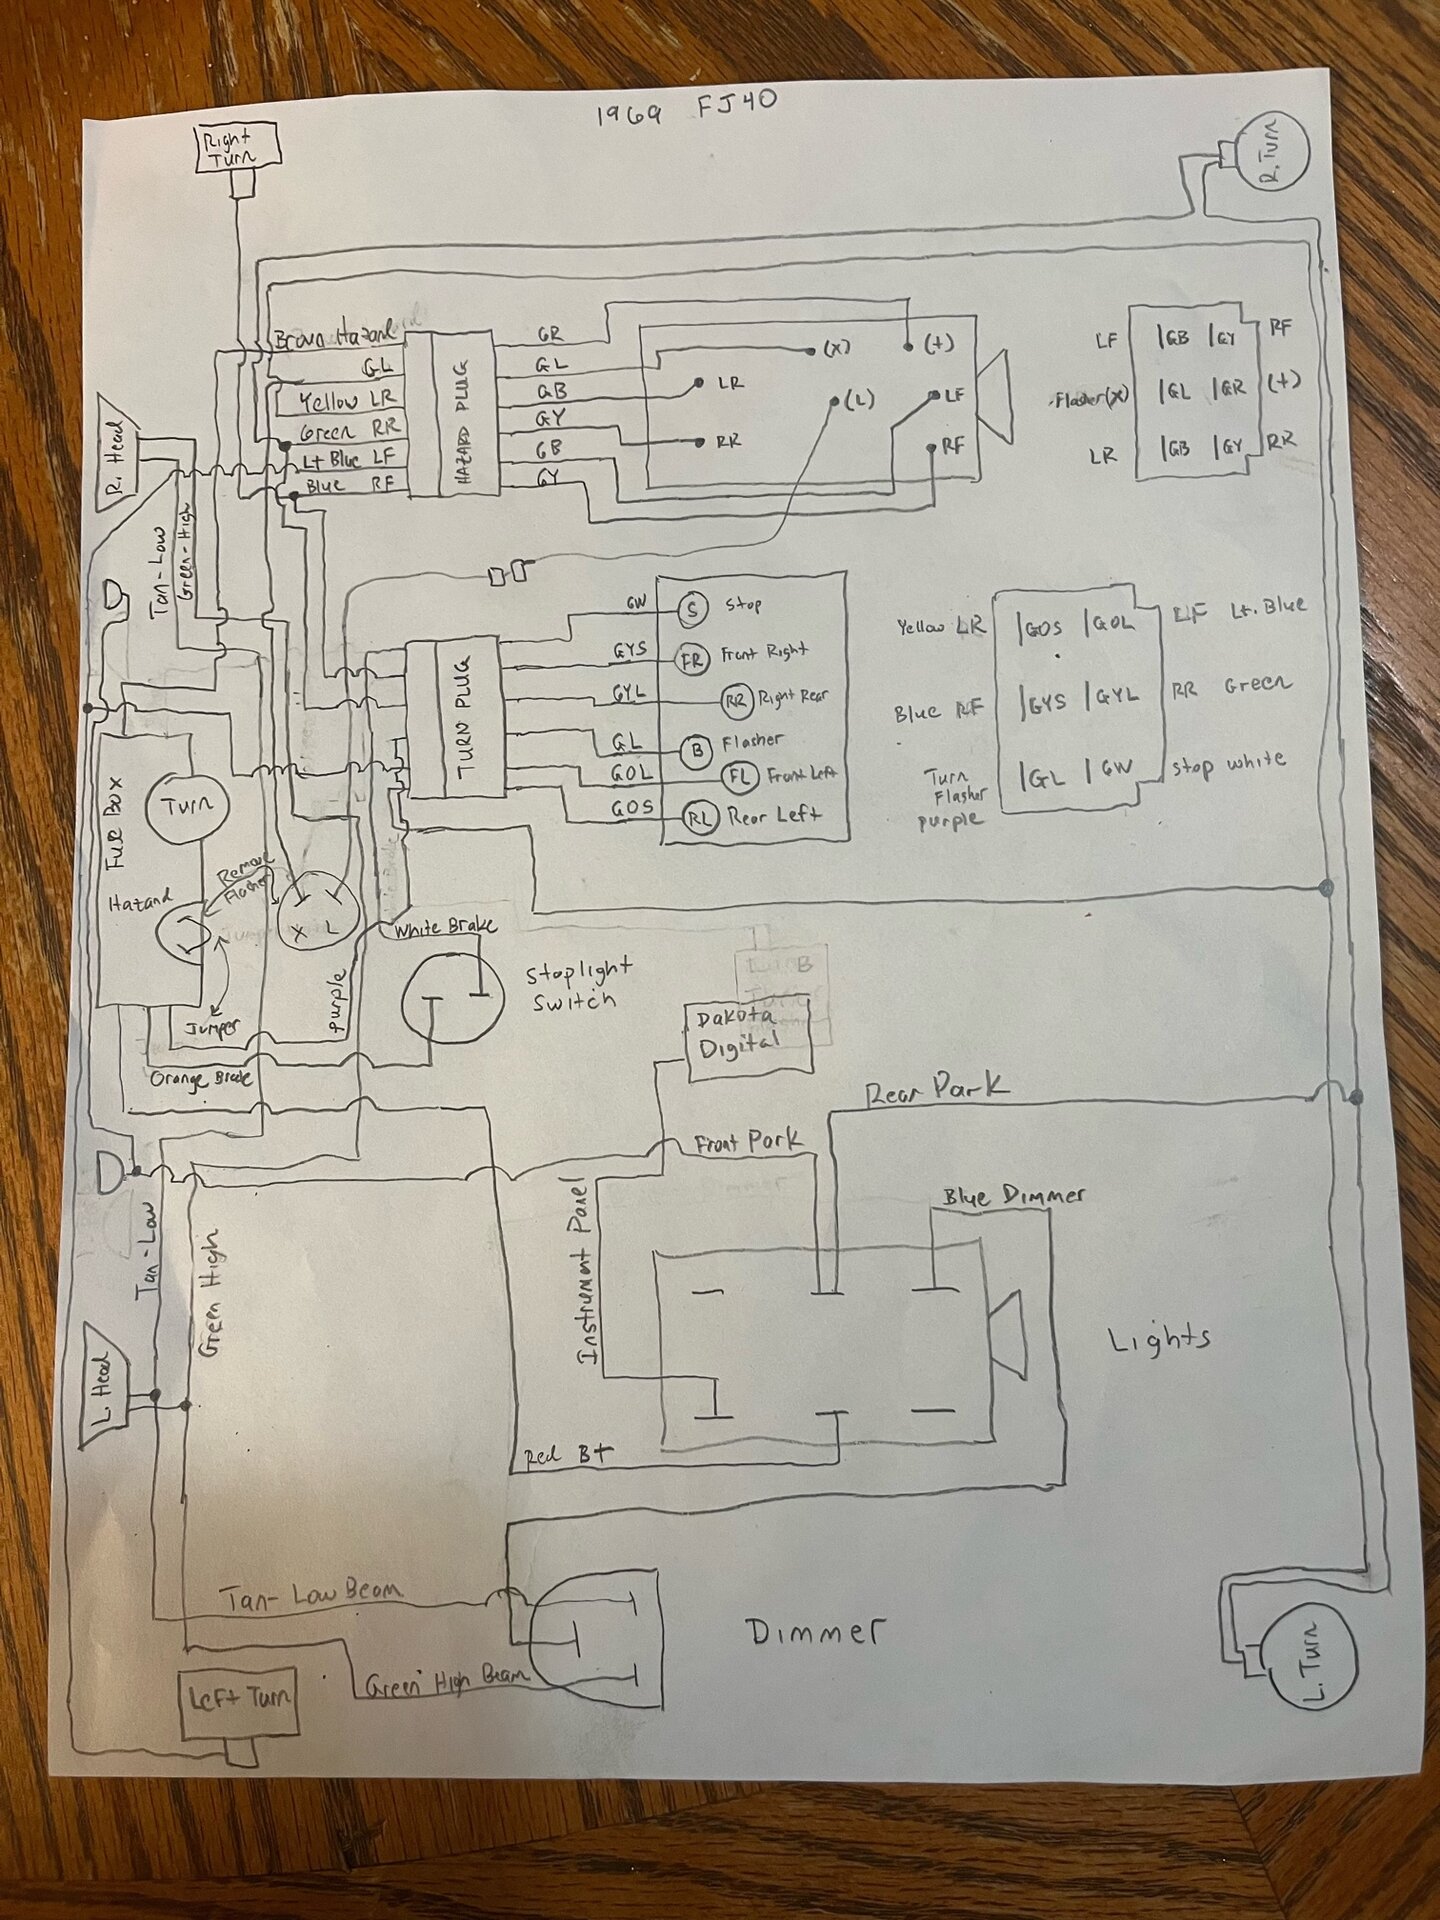 1969 FJ40
Right
Turn
R. Turn
Brown Hazard
GL
Yellow LR
Green RR
Lt Blue LF
Blue RF
HAZARD PLUG
GR
GL
GB
GY
GB
GY
(X)
(+)
LR
(L)
LF
RR
RF
LF |GB |GY RF
Flasher(X) |GL |GR (+)
LR |GB |GY RR
R. Head
Tan-Low
Green-High
TURN PLUG
GW
GYS
GYL
GL
GOL
GOS
S Stop
FR Front Right
RR Right Rear
B Flasher
FL Front Left
RL Rear Left
Yellow LR |GOS |GOL LF Lt. Blue
Blue RF |GYS |GYL RR Green
Turn
Flasher
purple
|GL |GW Stop white
Fuse Box
Turn
Hazard
Remove
Flasher
X L
Jumper
purple
White Brake
Stoplight
Switch
Orange Brake
Dakota
Digital
Rear Park
Front Park
Instrument Panel
Blue Dimmer
Tan-Low
Green High
L. Head
Lights
Red B+
Tan-Low Beam
Green High Beam
Dimmer
Left Turn
L. Turn